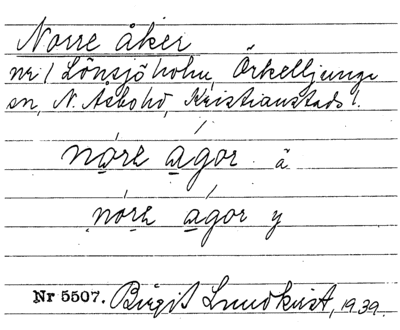 Norre åker
nr 1 Lönsjöholm, Örkelljunga
sn, N. Åsbo hd, Kristianstads l.
nórə ágor ä
nórə ágor y
Nr 5507. Birgit Lundkvist, 1939.